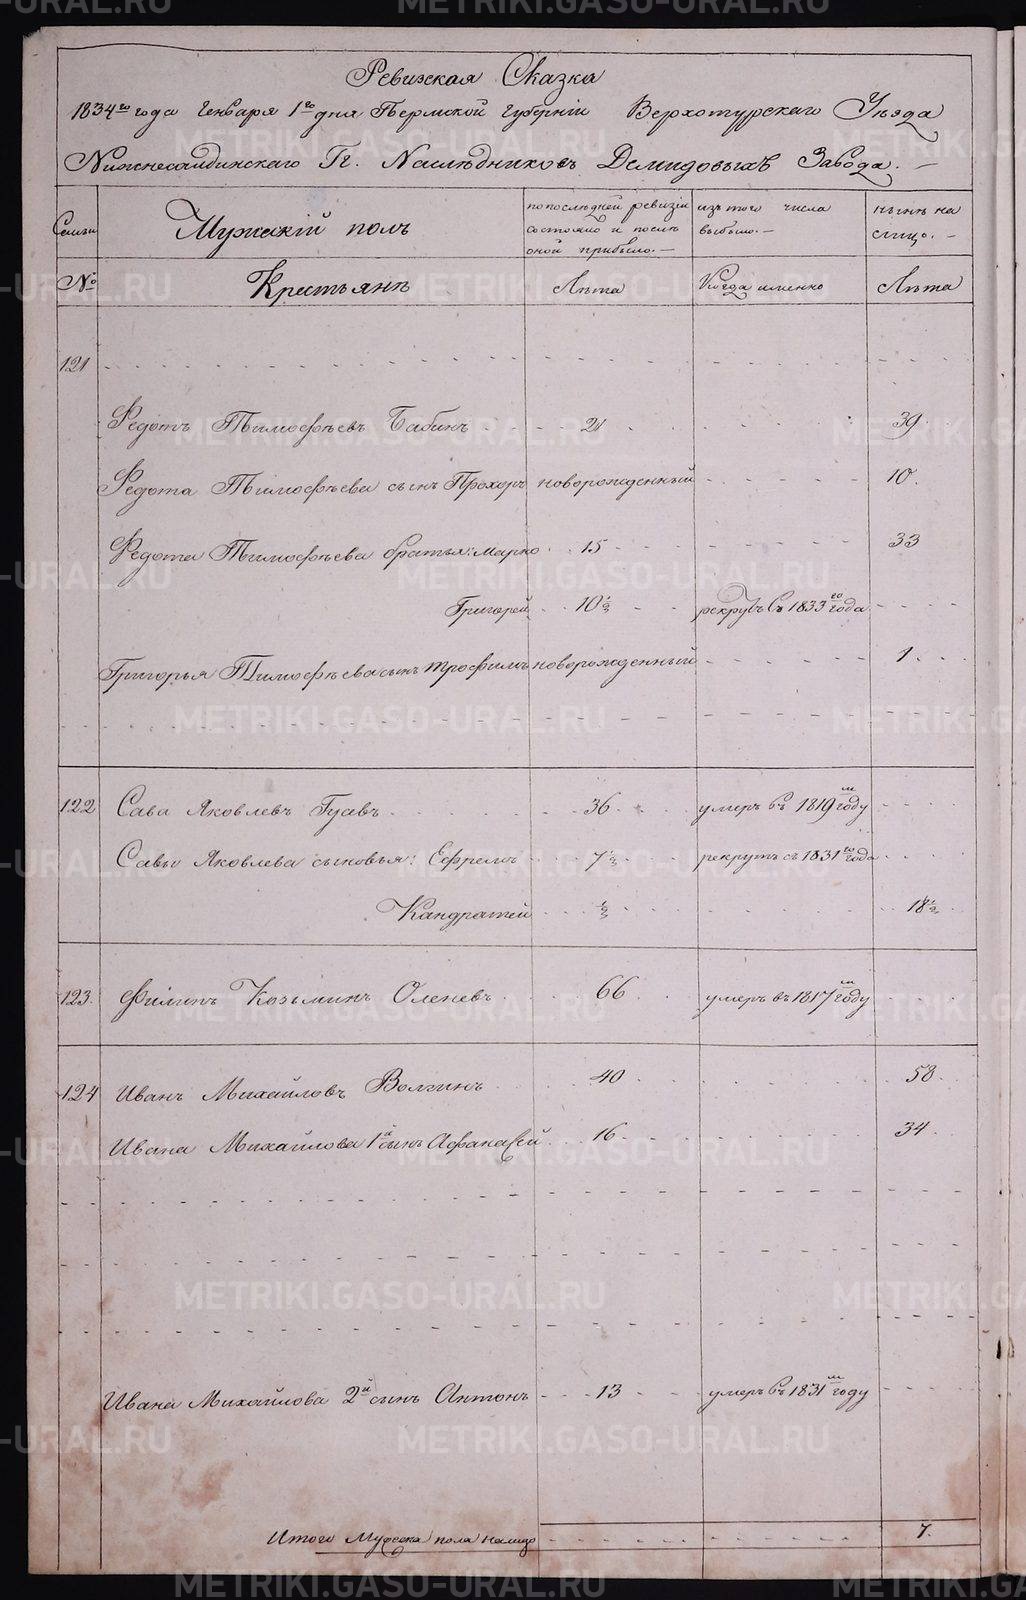 Ревизская Сказка
1834го года Генваря 1го дня Пермской Губернiи Верхотурскаго Уѣзда
Нижнесалдинскаго Гг. Наслѣдниковъ Демидовыхъ Завода. —
Семьи
Мужескiй полъ
по последней ревизiи состояло и послѣ оной прибыло. —
изъ того числа выбыло. —
нынѣ на лицо. —
№
Крестьянѣ
Лѣта
Когда именно
Лѣта
121
Федотъ Тимофѣевъ Бабинъ 21 39
Федота Тимофѣева сынъ Прохоръ новорожденный 10.
Федота Тимофѣева братья: Марко 15 33
Григорей 10½ рекрутъ съ 1833го года
Григорья Тимофѣева сынъ Трофимъ новорожденный 1
122 Сава Яковлевъ Гуавъ 36 умеръ въ 1819м году
Савы Яковлева сыновья: Ефремъ 7½ рекрутъ съ 1831го года
Кандратей ½ 18½
123. Филипъ Козьминъ Оленевъ 66 умеръ въ 1817м году
124 Иванъ Михайловъ Волгинъ 40 58
Ивана Михайлова 1й сынъ Афанасей 16 34
Ивана Михайлова 2й сынъ Антонъ 13 умеръ въ 1831м году
Итого Мужеска пола налицо 7.
METRIKI.GASO-URAL.RU